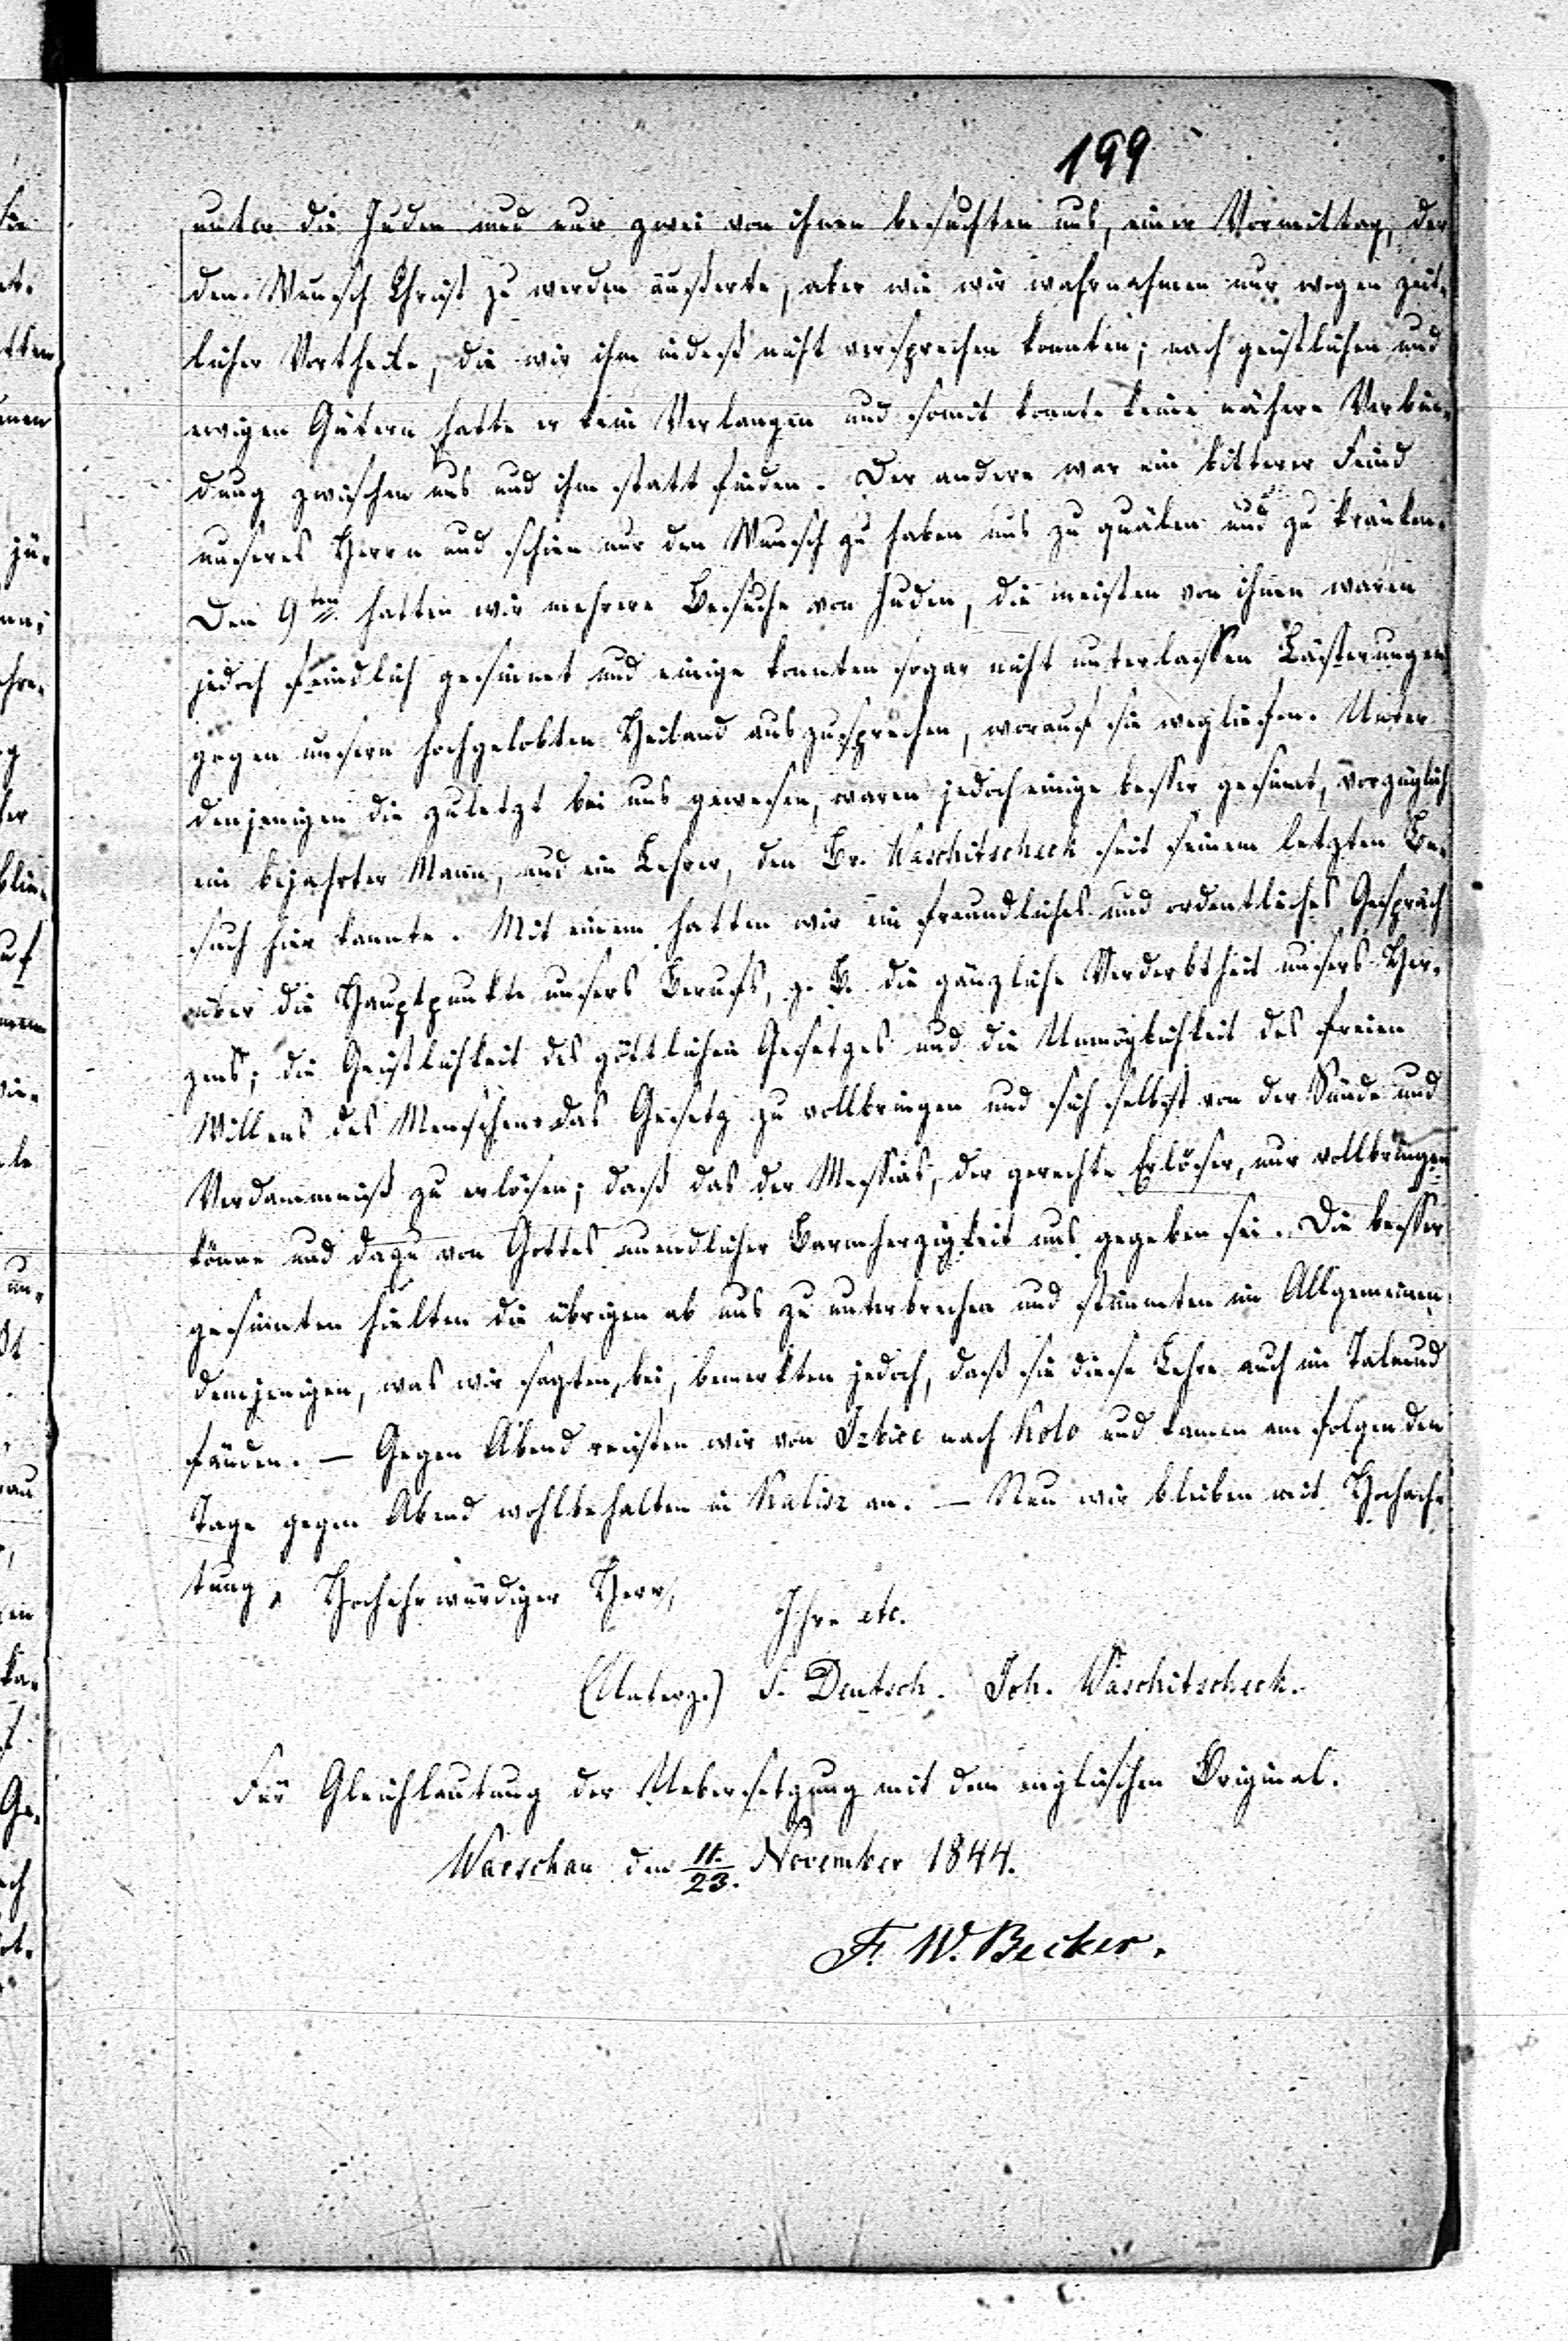 199
unter die Juden und nur zwei von ihnen besuchten uns, einer Vormittag, der
den Wunsch Christ zu werden äußerte, aber wie wir wahrnahmen nur wegen zeit-
licher Vortheile, die wir ihm indeß nicht versprechen konnten; nach geistlichen und
ewigen Gütern hatte er kein Verlangen und somit konnte keine nähere Verbin-
dung zwischen uns und ihm statt finden. Der andere war ein bitterer Feind
unseres Herrn und schien nur den Wunsch zu haben uns zu quälen und zu kränken.
Den 9ten hatten wir mehrere Besuche von Juden, die meisten von ihnen waren
jedoch feindlich gesinnet und einige konnten sogar nicht unterlassen Lästerungen
gegen unsern hochgelobten Heiland auszusprechen, worauf sie wegliefen. Unter
denjenigen die zuletzt bei uns gewesen, waren jedoch einige besser gesinnt, vorzüglich
ein bejahrter Mann, und ein Lehrer, den Br. Waschitscheck seit seinem letzten Be-
such hier kannte. Mit einem hatten wir ein freundliches und ordentliches Gespräch
über die Hauptpunkte unsers Berufs, z. B. die gänzliche Verderbtheit unsers Her-
zens; die Geistlichkeit des göttlichen Gesetzes und die Unmöglichkeit des freien
Willens des Menschen das Gesetz zu vollbringen und sich selbst von der Sünde und
Verdammniß zu erlösen; daß das der Messias, der gerechte Erlöser, nur vollbringen
könne und dazu von Gottes unendlicher Barmherzigkeit uns gegeben sei. Die besser
gesinnten hielten die übrigen ab uns zu unterbrechen und stimmten im Allgemeinen
demjenigen, was wir sagten, bei, bemerkten jedoch, daß sie diese Lehre auch im Talmud
fänden. — Gegen Abend reisten wir von Izbice nach Kolo und kamen am folgenden
Tage gegen Abend wohlbehalten in Kalisz an. — Nun wir bleiben mit Hochach-
tung, Hochehrwürdiger Herr,
Ihre etc.
(Unterz.) S. Deutsch. Joh. Waschitscheck.
Für Gleichlautung der Uebersetzung mit dem englischen Original.
Warschau den 11./23. November 1844.
F. W. Becker.